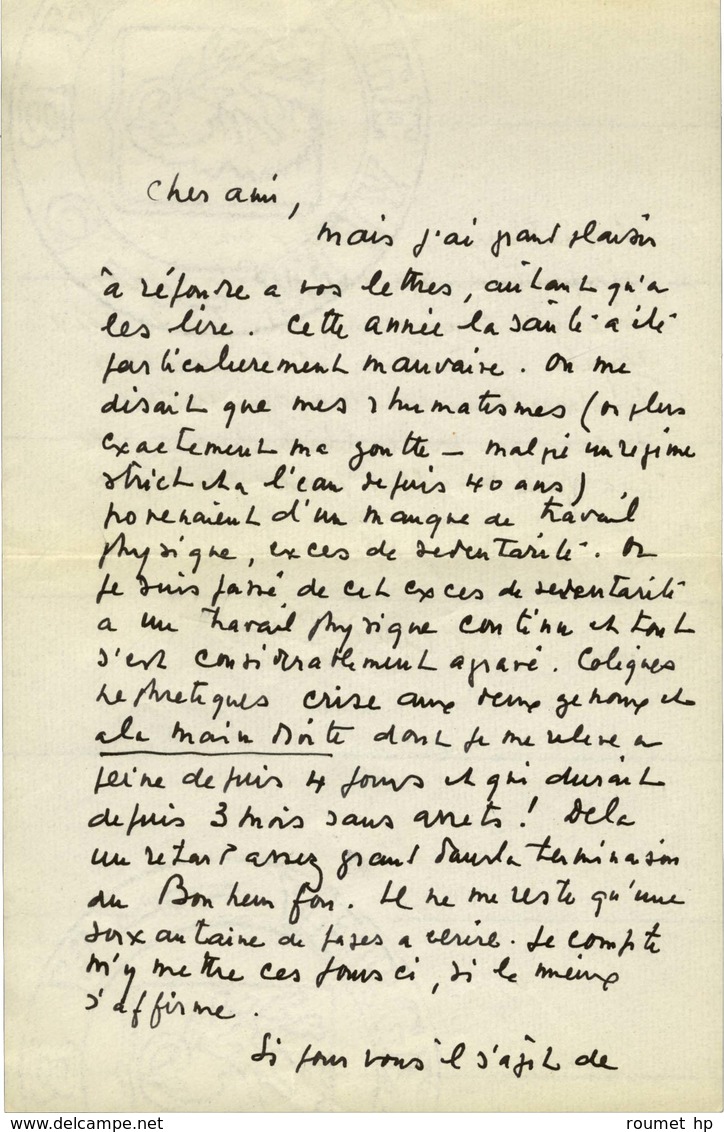 Cher ami,
mais j'ai grand plaisir
à répondre a vos lettres, autant qu'a
les lire. Cette année la santé a été
particulierement mauvaise. On me
disait que mes rhumatismes (ou plus
exactement ma goutte – malgré un regime
strict et a l'eau depuis 40 ans),
provenaient d'un manque de travail
physique, exces de sedentarité. Or
je suis passé de cet exces de sedentarité
a un travail physique continu et tout
s'est considerablement agravé. Coliques
nephretiques crise aux deux genoux et
a la main droite dont je me releve a
peine depuis 4 jours et qui durait
depuis 3 mois sans arrets ! Dela
un retard assez grand dans la terminaison
du Bonheur fou. Il ne me reste qu'une
soixantaine de pages a ecrire. Je compte
m'y mettre ces jours ci, si le mieux
s'affirme.
Si pour vous il s'agit de
roumet hp
www.delcampe.net